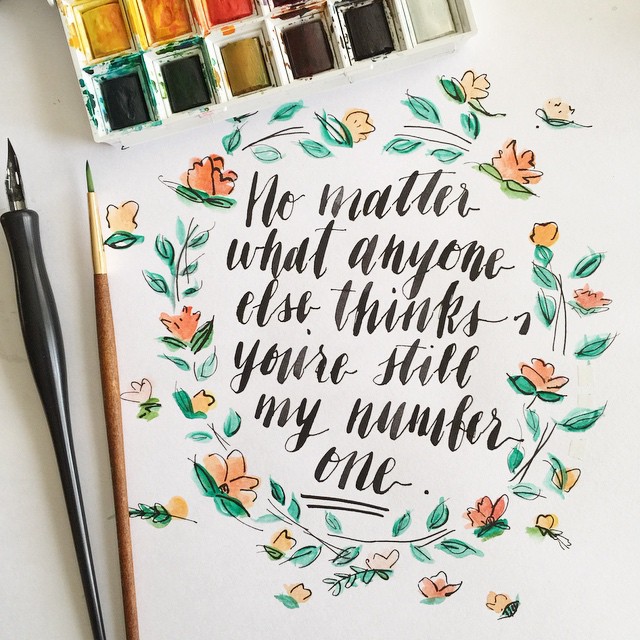 No matter
what anyone
else thinks,
you're still
my number
one.